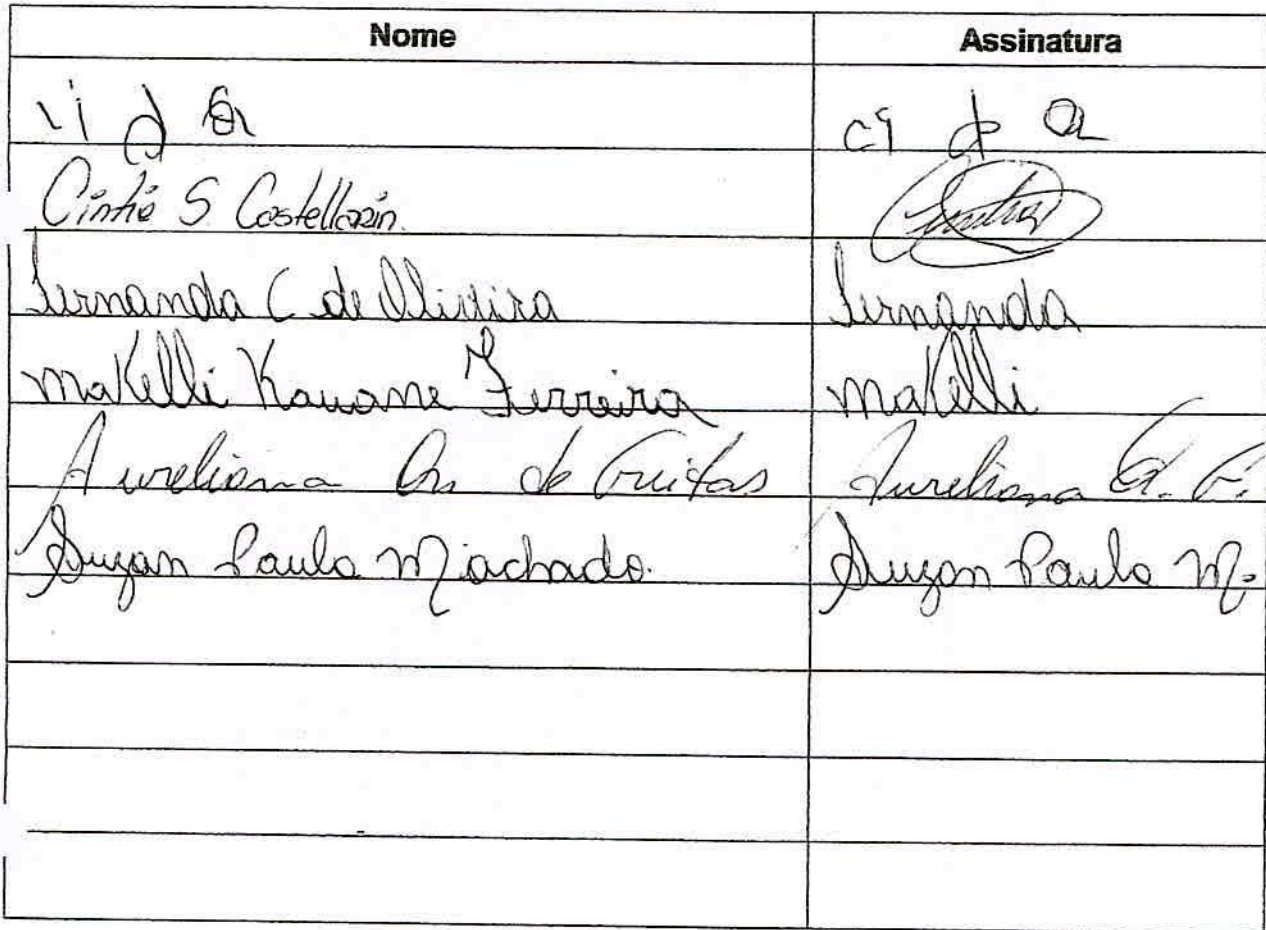 Nome Assinatura
Cintia S. Castellarin
Fernanda C de Oliveira Fernanda
Makelli Kauane Ferreira Makelli
Aureliana de Freitas Aureliana
Suzan Paula Machado. Suzan Paula M.